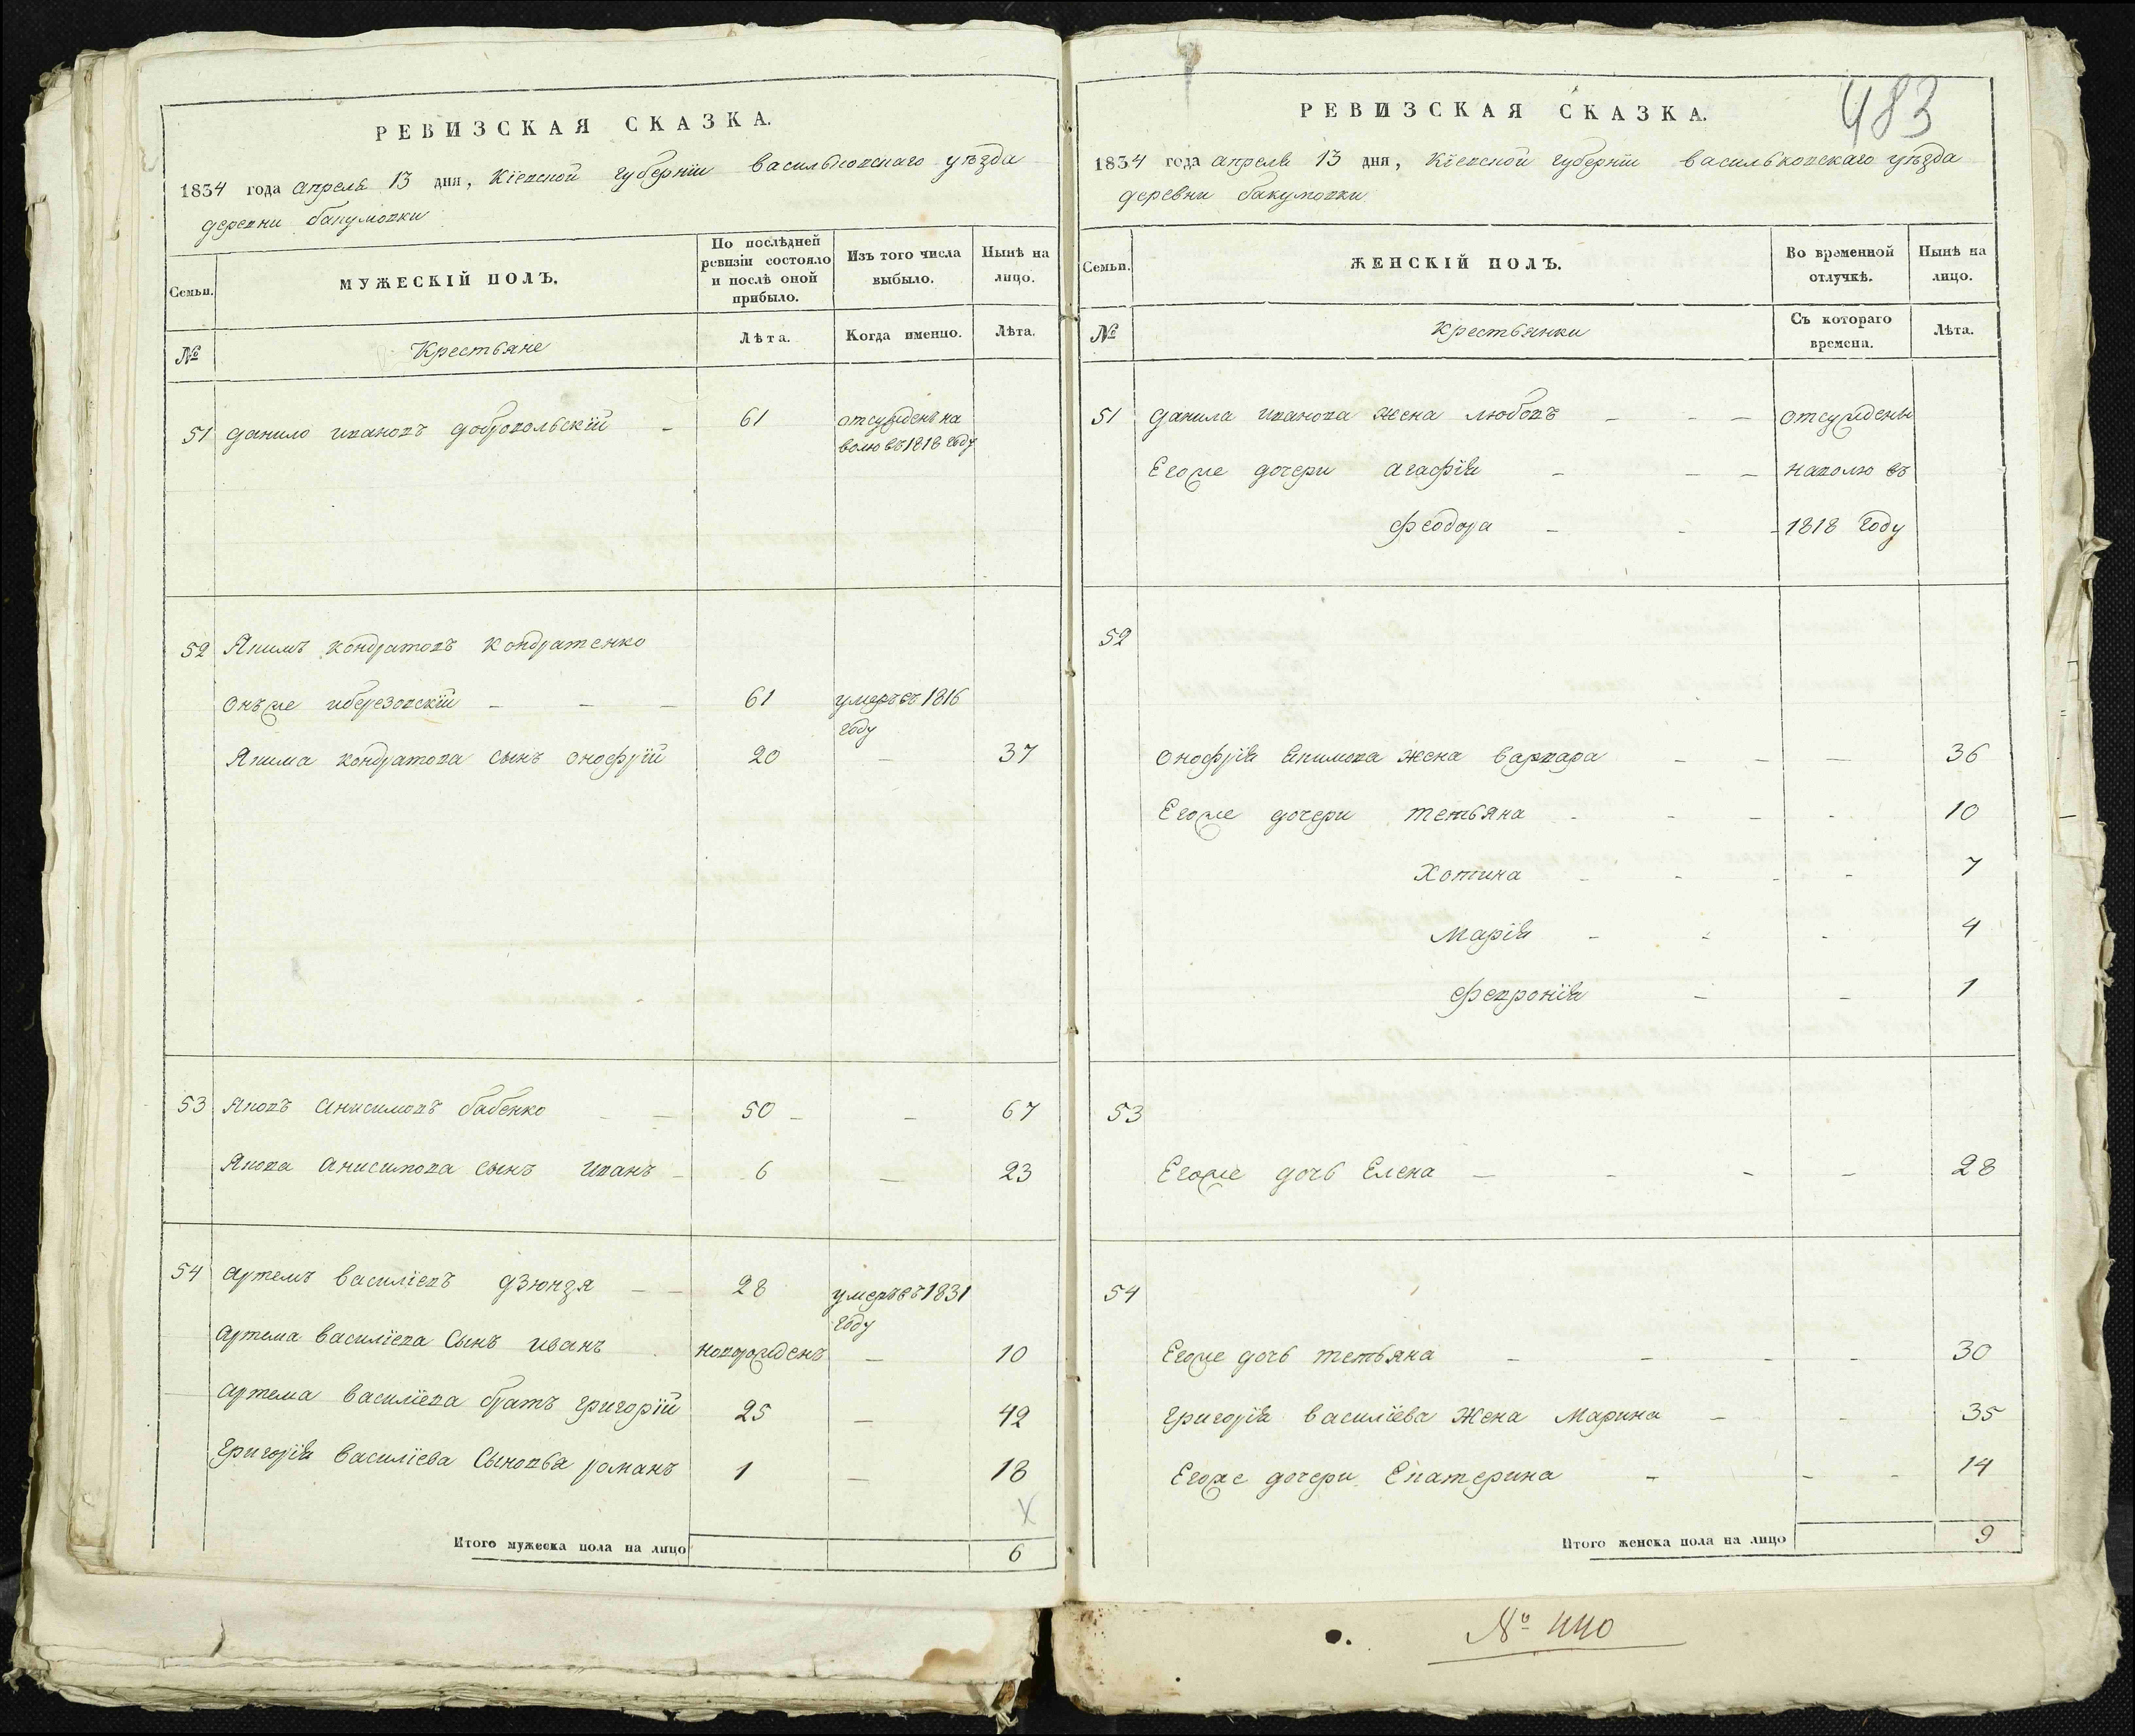 РЕВИЗСКАЯ СКАЗКА.
1834 года апреля 13 дня, Кіевской губерніи васильковскаго уѣзда
деревни бакумовки
Семьи. МУЖЕСКІЙ ПОЛЪ. По послѣдней ревизіи состояло и послѣ оной прибыло. Изъ того числа выбыло. Нынѣ на лицо.
№ Крестьяне Лѣта. Когда именно. Лѣта.
51 данило ивановъ добровольскій 61 отсужденъ на
волю въ 1818 году
52 Якимъ кондратовъ кондратенко
онъже иберезовскій 61 умеръ въ 1816
году
Якима кондратова сынъ онофрій 20 37
53 Яковъ анисимовъ бабенко 50 67
Якова анисимова сынъ иванъ 6 23
54 артемъ василіевъ дзюндзя 28 умеръ въ 1831
году
артема василіева сынъ иванъ новорожденъ 10
артема василіева братъ григорій 25 42
григорія василіева сыновья романъ 1 18
Итого мужеска пола на лицо 6
483
РЕВИЗСКАЯ СКАЗКА.
1834 года апреля 13 дня, Кіевской губерніи васильковскаго уѣзда
деревни бакумовки
Семьи. ЖЕНСКІЙ ПОЛЪ. Во временной отлучкѣ. Нынѣ на лицо.
№ Крестьянки Съ котораго времена. Лѣта.
51 данила иванова жена любовъ отсуждены
Егоже дочери агафія наволю въ
феодора 1818 году
52
онофрія якимова жена варвара 36
Егоже дочери тетьяна 10
Хотина 7
Марія 4
февронія 1
53
Егоже дочь Елена 28
54
Егоже дочь тетьяна 30
григорія василіева жена Марина 35
Егоже дочери Екатерина 14
Итого женска пола на лицо 9
№ 440